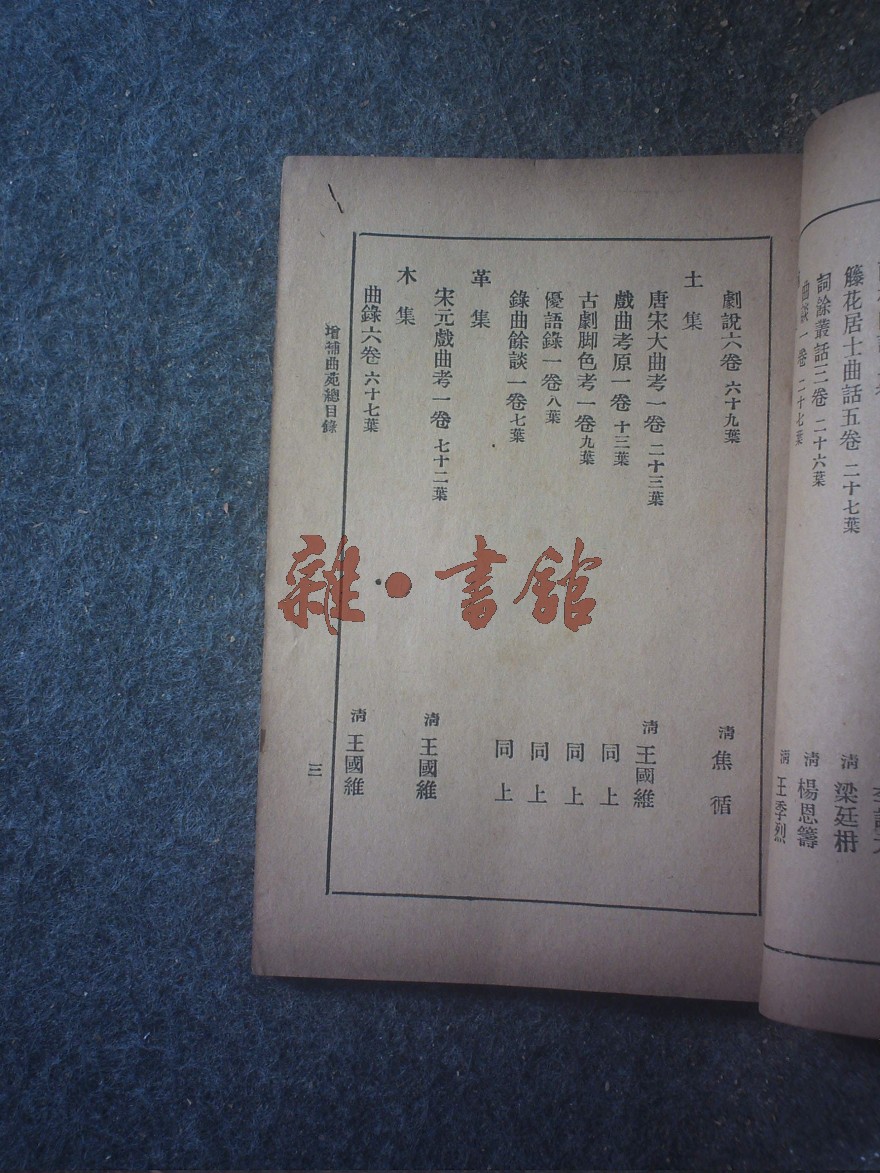 籐花居士曲話五卷 二十七葉 清 梁廷枏
詞餘叢話三卷 二十六葉 清 楊恩籌
曲談一卷 二十七葉 清 王季烈
劇說六卷 六十九葉 清 焦循
土集
唐宋大曲考一卷 二十三葉 清 王國維
戲曲考原一卷 十三葉 同上
古劇脚色考一卷 九葉 同上
優語錄一卷 八葉 同上
錄曲餘談一卷 七葉 同上
革集
宋元戲曲考一卷 七十二葉 清 王國維
木集
曲錄六卷 六十七葉 清 王國維
增補曲苑總目錄 三
雜·書館